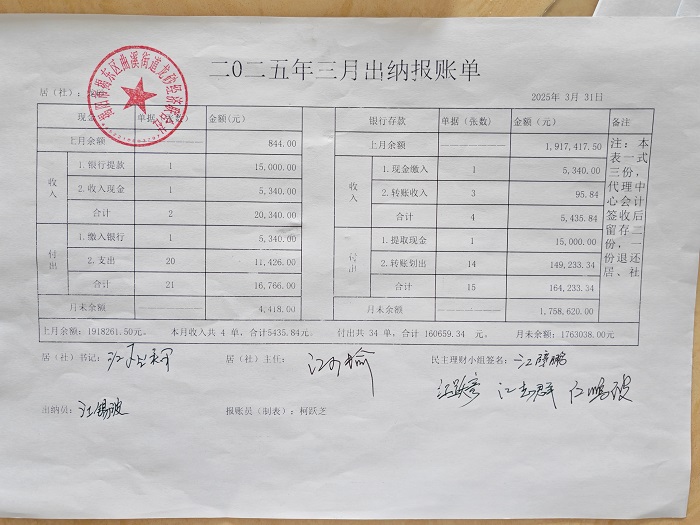 二〇二五年三月出纳报账单
居（社）： 2025年 3月 31日
现金 单据（张数） 金额(元) 银行存款 单据（张数） 金额（元） 备注
上月余额 844.00 上月余额 1,917,417.50
收入 1.银行提款 1 15,000.00 收入 1.现金缴入 1 5,340.00
2.收入现金 1 5,340.00 2.转账收入 3 95.84
合计 2 20,340.00 合计 4 5,435.84
付出 1.缴入银行 1 5,340.00 付出 1.提取现金 1 15,000.00
2.支出 20 11,426.00 2.转账划出 14 149,233.34
合计 21 16,766.00 合计 15 164,233.34
月末余额 4,418.00 月末余额 1,758,620.00
注：本表一式三份，代理中心会计签收后留存二份，一份退还居、社
上月余额：1918261.50元。 本月收入共 4 单，合计5435.84元 付出共 34 单，合计 160659.34 元。 月末余额：1763038.00元
居（社）书记： 居（社）主任： 民主理财小组签名：
出纳员：江锡波 报账员（制表）：柯跃芝